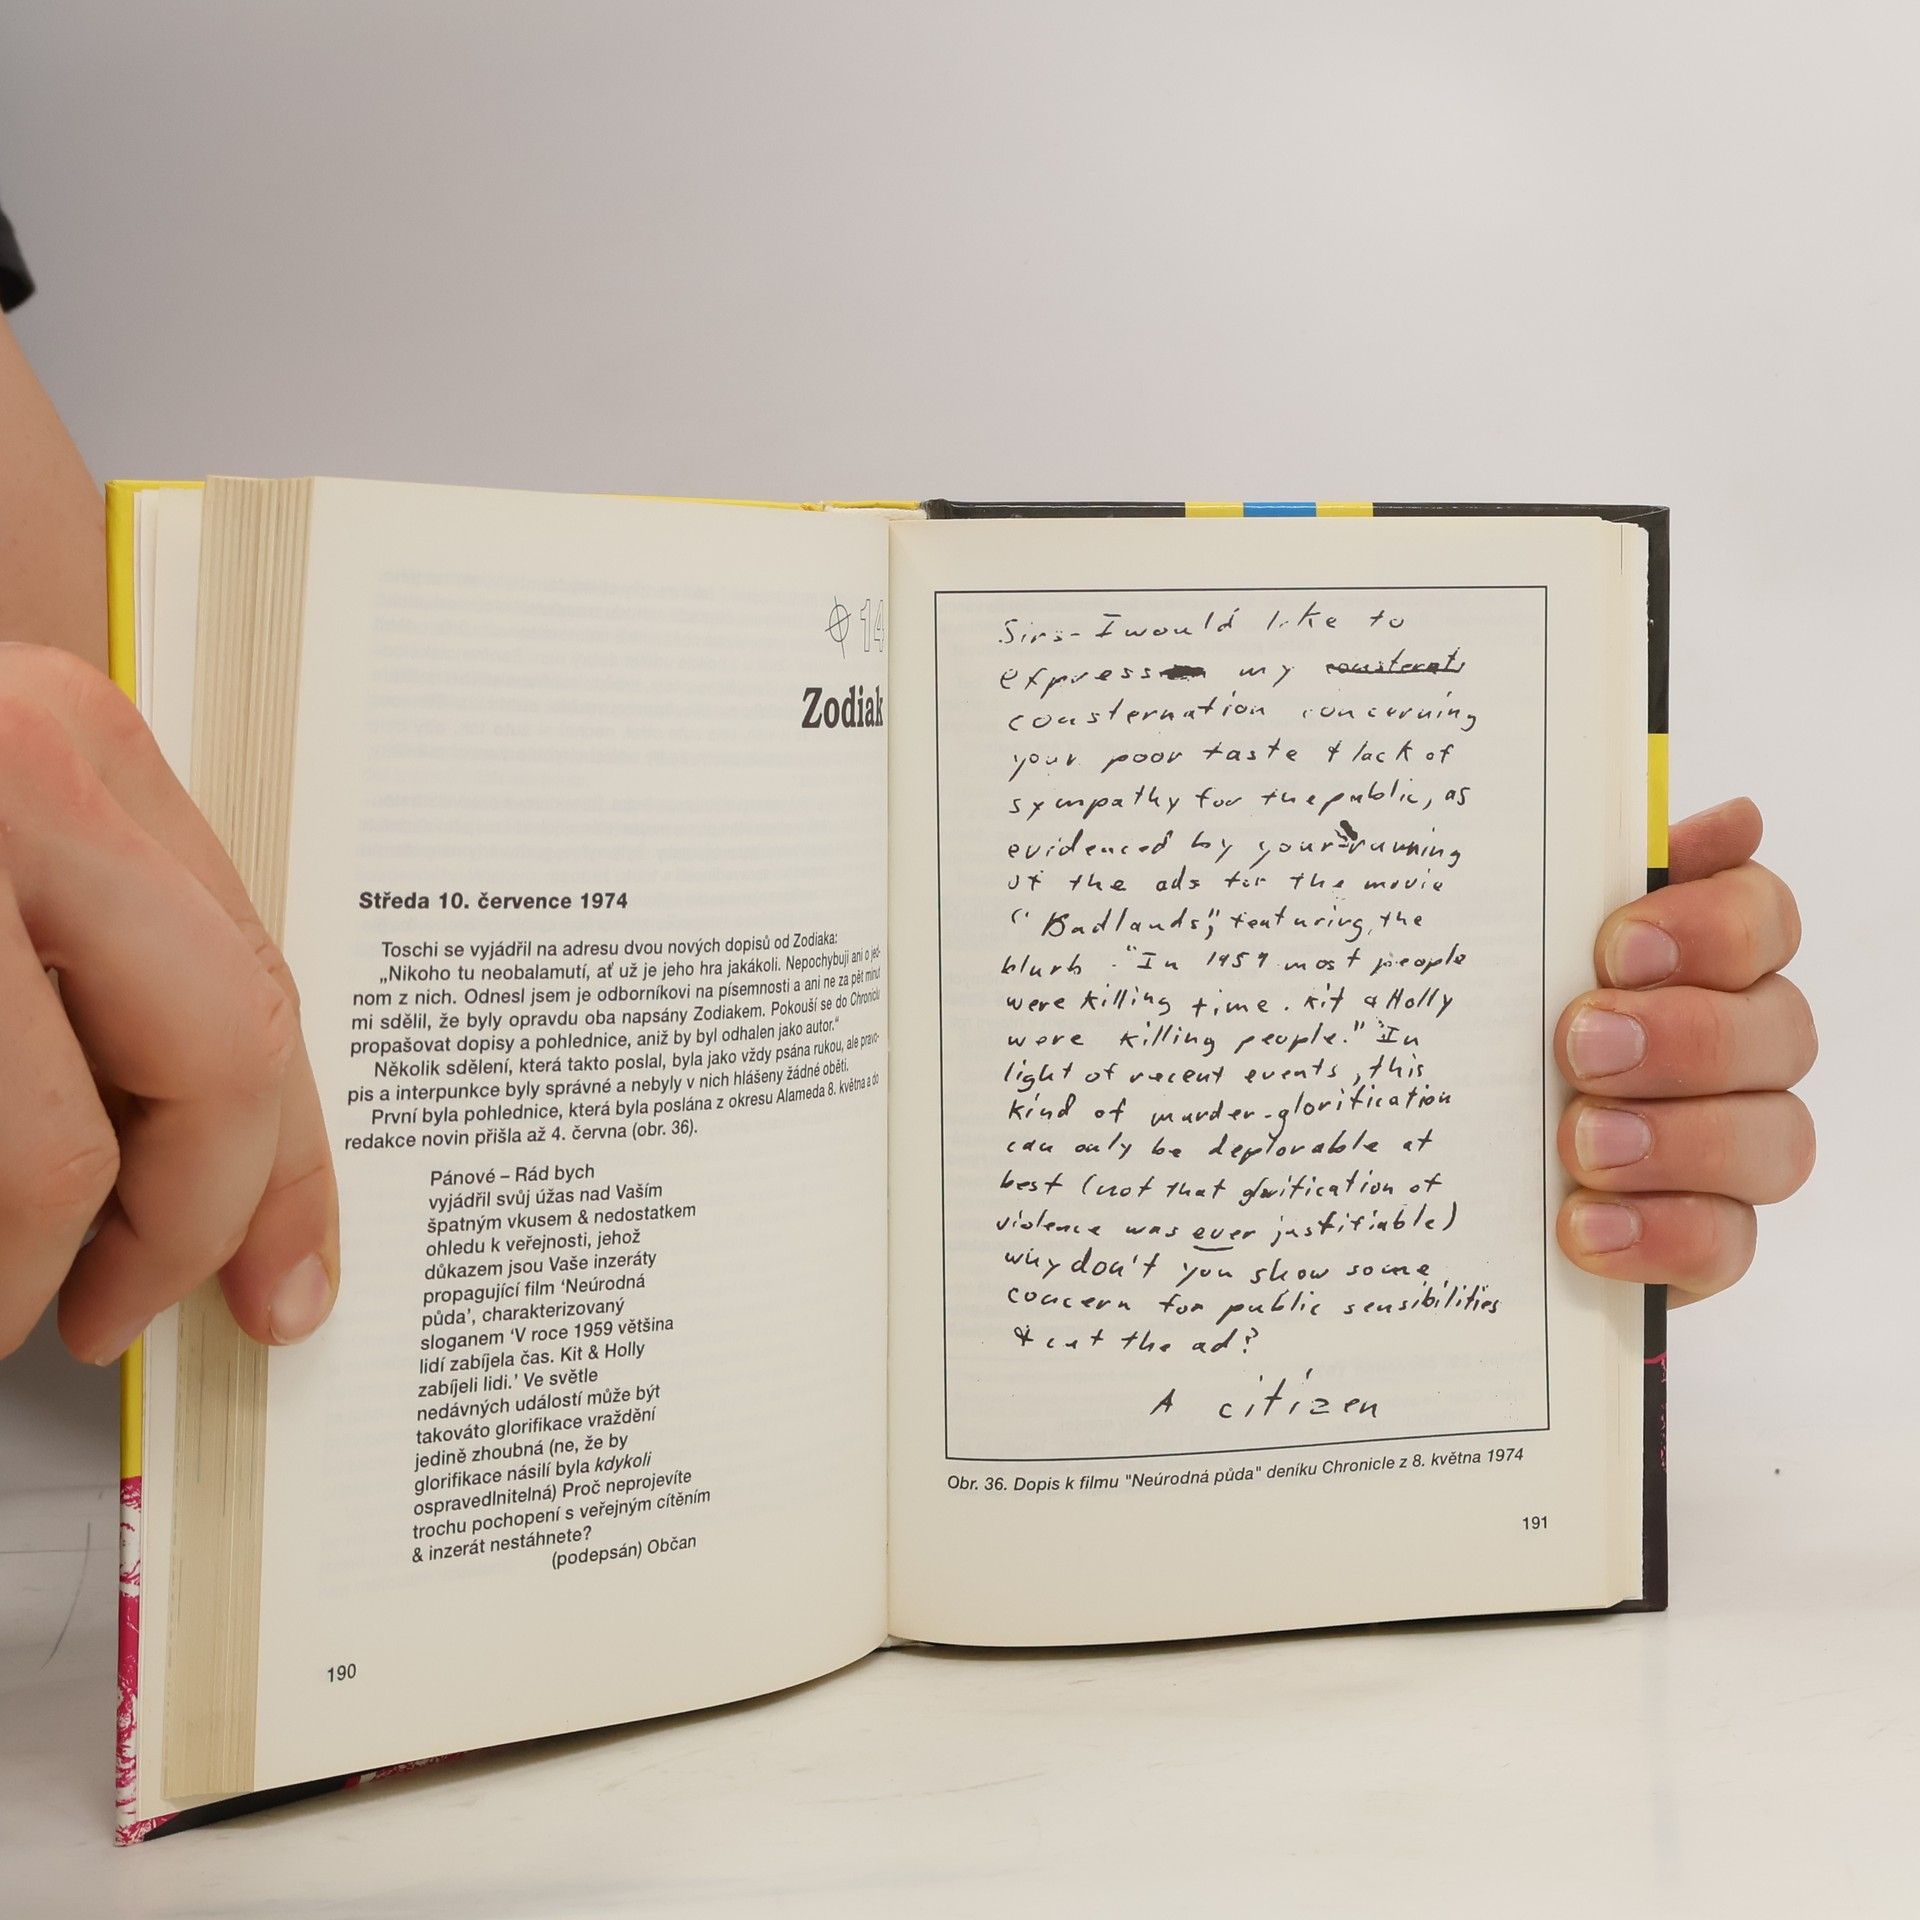 14
Zodiak
Středa 10. července 1974
Toschi se vyjádřil na adresu dvou nových dopisů od Zodiaka:
„Nikoho tu neobalamutí, ať už je jeho hra jakákoli. Nepochybuji ani o jed-
nom z nich. Odnesl jsem je odborníkovi na písemnosti a ani ne za pět minut
mi sdělil, že byly opravdu oba napsány Zodiakem. Pokouší se do Chroniclu
propašovat dopisy a pohlednice, aniž by byl odhalen jako autor.“
Několik sdělení, která takto poslal, byla jako vždy psána rukou, ale pravo-
pis a interpunkce byly správné a nebyly v nich hlášeny žádné oběti.
První byla pohlednice, která byla poslána z okresu Alameda 8. května a do
redakce novin přišla až 4. června (obr. 36).
Pánové – Rád bych
vyjádřil svůj úžas nad Vaším
špatným vkusem & nedostatkem
ohledu k veřejnosti, jehož
důkazem jsou Vaše inzeráty
propagující film ‘Neúrodná
půda’, charakterizovaný
sloganem ‘V roce 1959 většina
lidí zabíjela čas. Kit & Holly
zabíjeli lidi.’ Ve světle
nedávných událostí může být
takováto glorifikace vraždění
jedině zhoubná (ne, že by
glorifikace násilí byla kdykoli
ospravedlnitelná) Proč neprojevíte
trochu pochopení s veřejným cítěním
& inzerát nestáhnete?
(podepsán) Občan
190
Sirs- I would like to
express my consternat
consternation concerning
your poor taste & lack of
sympathy for the public, as
evidenced by your running
of the ads for the movie
"Badlands", featuring the
blurb - "In 1959 most people
were killing time. Kit & Holly
were killing people." In
light of recent events, this
kind of murder-glorification
can only be deplorable at
best (not that glorification of
violence was ever justifiable)
why don't you show some
concern for public sensibilities
& cut the ad?
A citizen
Obr. 36. Dopis k filmu "Neúrodná půda" deníku Chronicle z 8. května 1974
191